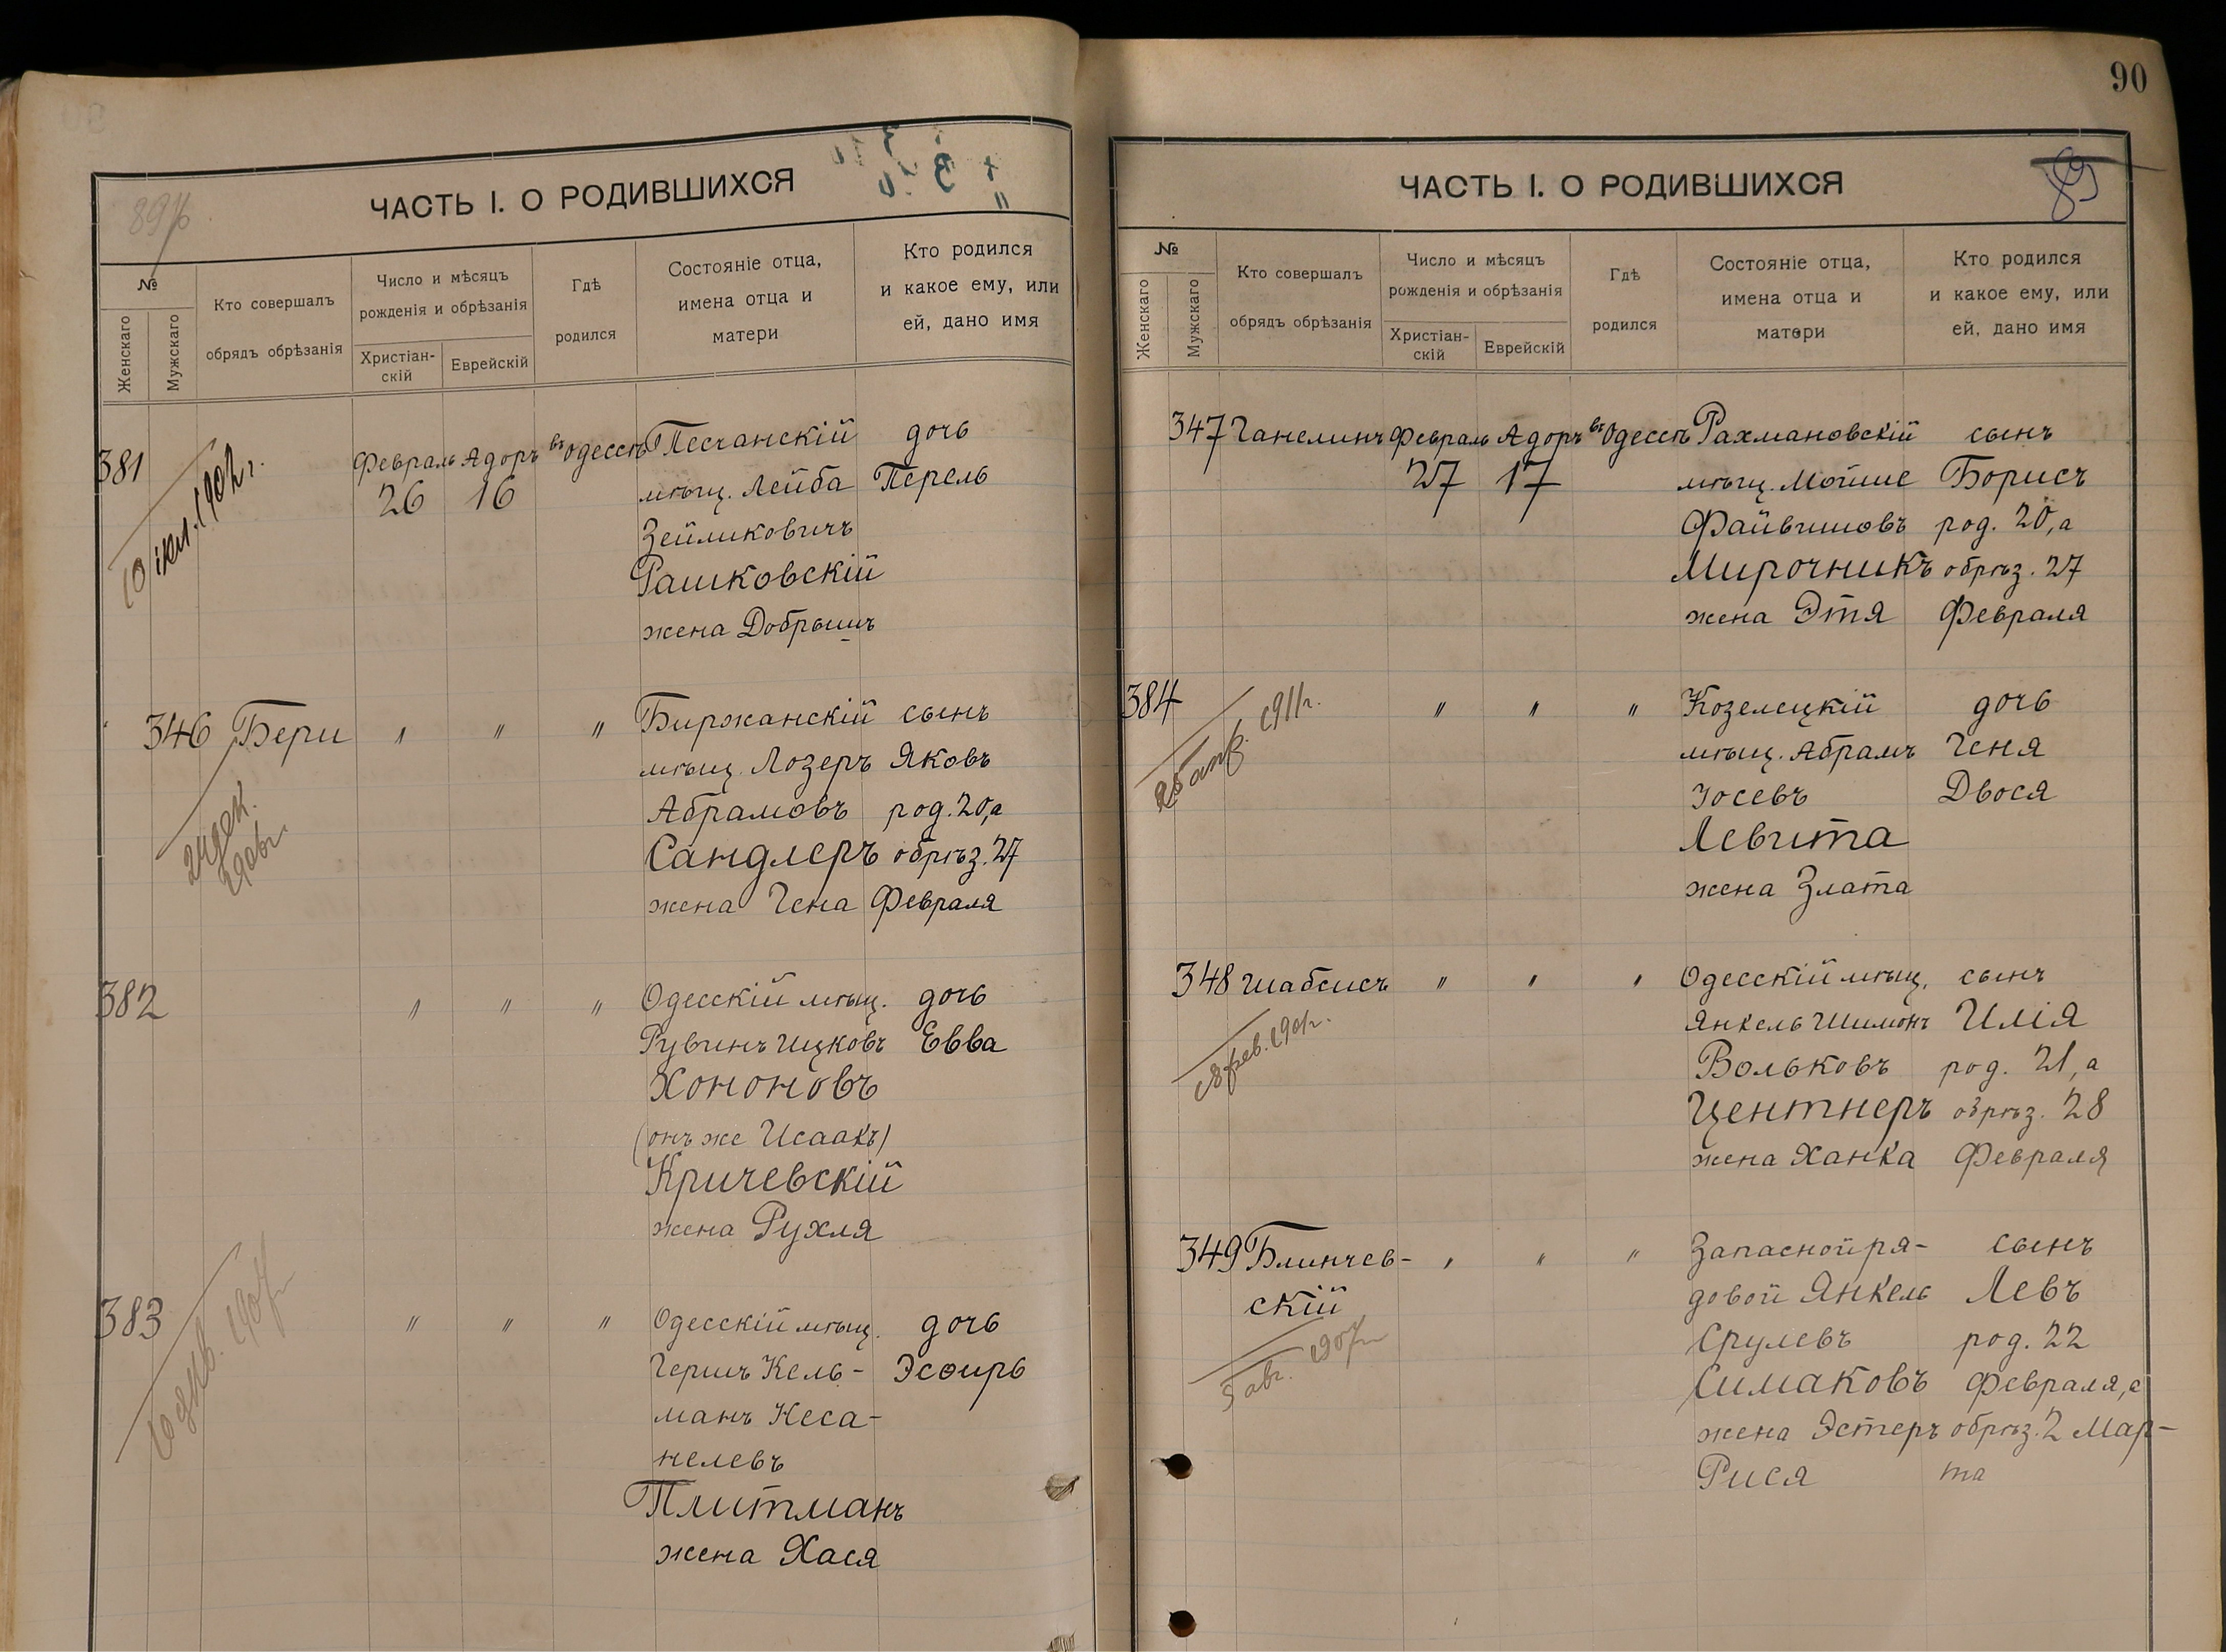 90
ЧАСТЬ I. О РОДИВШИХСЯ
№
Женскаго
Мужскаго
Кто совершалъ
обрядъ обрѣзанія
Число и мѣсяцъ
рожденія и обрѣзанія
Христіан-
скій
Еврейскій
Гдѣ
родился
Состояніе отца,
имена отца и
матери
Кто родился
и какое ему, или
ей, дано имя
381
10 іюл. 1902 г.
Февраль Адоръ въ Одессѣ Песчанскій дочь
26 16 мѣщ. Лейба Перель
Зейликовичъ
Рашковскій
жена Добрышъ
346 Бери " " " Биржанскій сынъ
мѣщ. Лозеръ Яковъ
Абрамовъ род. 20, а
Сандлеръ обрѣз. 27
жена Гена Февраля
382 " " " Одесскій мѣщ. дочь
Рувинъ Ицковъ Евва
Хононовъ
(онъ же Исаакъ)
Кричевскій
жена Рухля
383 " " " Одесскій мѣщ. дочь
Гершъ Кель- Эсѳирь
манъ Кеса-
нелевъ
Плитманъ
жена Хася
89
ЧАСТЬ I. О РОДИВШИХСЯ
№
Женскаго
Мужскаго
Кто совершалъ
обрядъ обрѣзанія
Число и мѣсяцъ
рожденія и обрѣзанія
Христіан-
скій
Еврейскій
Гдѣ
родился
Состояніе отца,
имена отца и
матери
Кто родился
и какое ему, или
ей, дано имя
347 Ганелинъ Февраль Адоръ въ Одессѣ Рахмановскій сынъ
27 17 мѣщ. Мойше Борисъ
Файвишовъ род. 20, а
Мирочникъ обрѣз. 27
жена Этя Февраля
384 " " " Козелецкій дочь
1911 г.
мѣщ. Абрамъ Геня
Іосевъ Двося
Левита
жена Злата
348 Шабсисъ " " " Одесскій мѣщ. сынъ
Янкель Шимонъ Илія
Вольковъ род. 21, а
Центнеръ обрѣз. 28
жена Ханка Февраля
349 Блинчев- " " " Запасной ря- сынъ
скій довой Янкель Левъ
5 авг. 1907 г.
Срулевъ род. 22
Симаковъ Февраля, а
жена Эстеръ обрѣз. 2 Мар-
Рися та